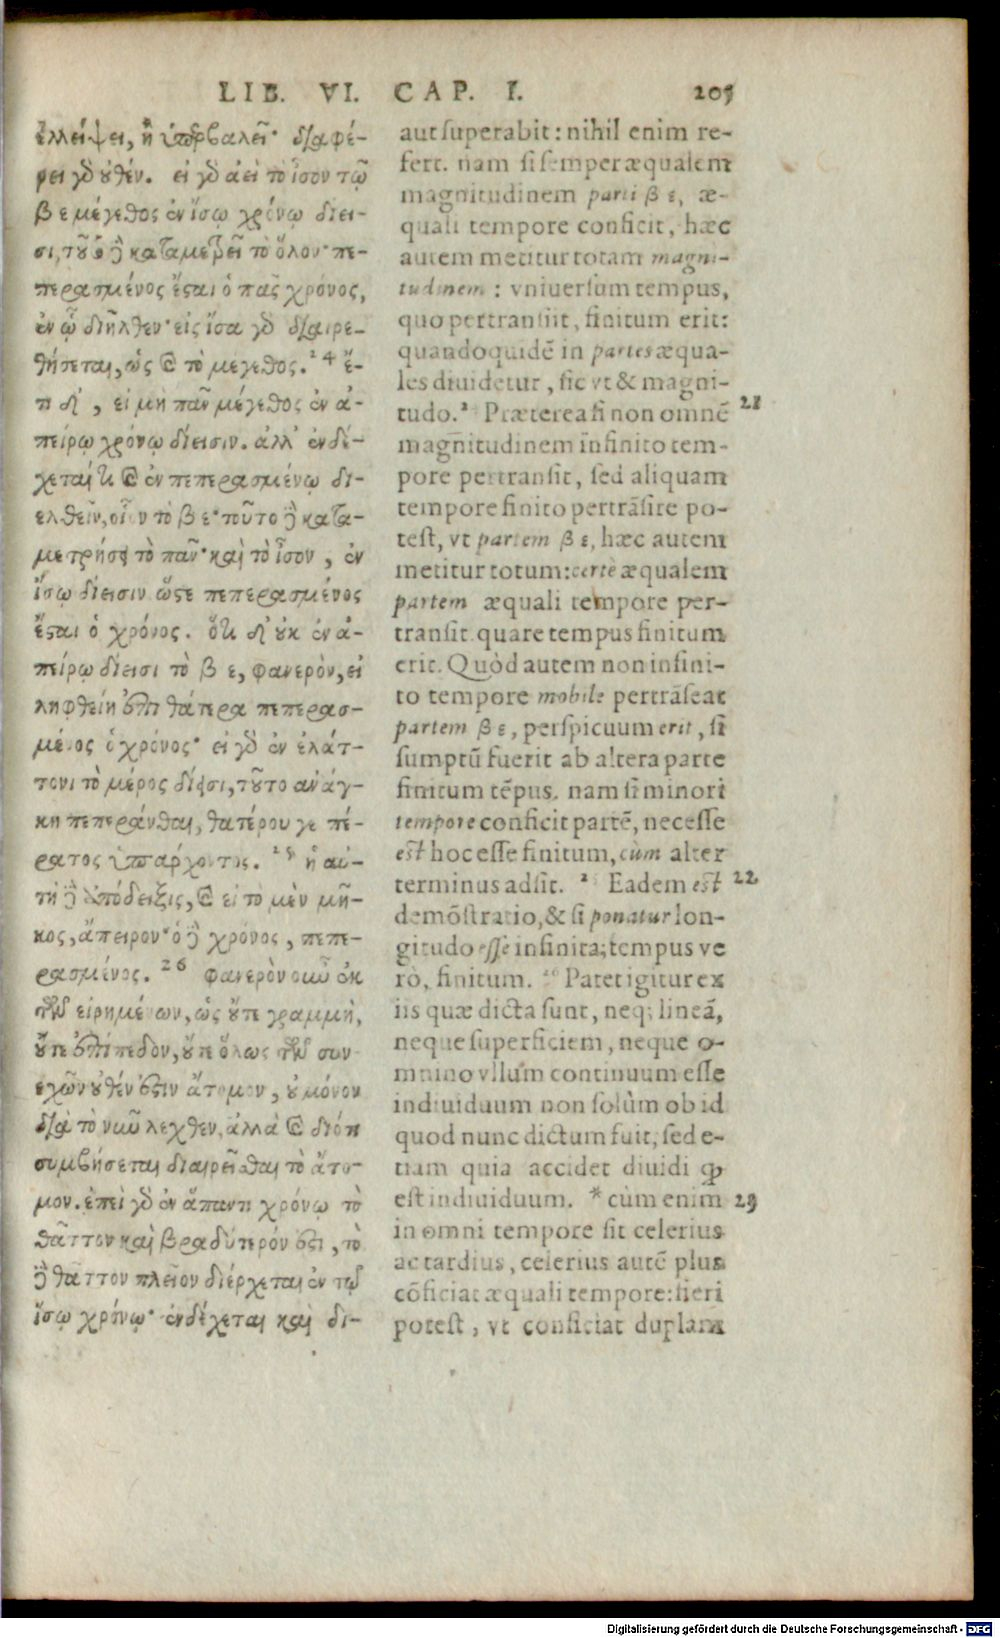 LIB. VI. CAP. I. 205
ἐλλείψει, ἢ ὑπερβαλεῖ· διαφέ-
ρει γὰρ οὐθέν. εἰ γὰρ ἀεὶ τὸ ἴσον τῷ
β ε μέγεθος ἐν ἴσῳ χρόνῳ δίει-
σι, τοῦτο δὲ καταμετρεῖ τὸ ὅλον· πε-
περασμένος ἔσται ὁ πᾶς χρόνος,
ἐν ᾧ διῆλθεν· εἰς ἴσα γὰρ διαιρε-
θήσεται, ὡς καὶ τὸ μέγεθος. 24 ἔ-
τι δ', εἰ μὴ πᾶν μέγεθος ἐν ἀ-
πείρῳ χρόνῳ δίεισιν. ἀλλ' ἐνδέ-
χεταί τι καὶ ἐν πεπερασμένῳ δι-
ελθεῖν, οἷον τὸ β ε· τοῦτο δὲ κατα-
μετρήσει τὸ πᾶν· καὶ τὸ ἴσον, ἐν
ἴσῳ δίεισιν ὥστε πεπερασμένος
ἔσται ὁ χρόνος. ὅτι δ' οὐκ ἐν ἀ-
πείρῳ δίεισι τὸ β ε, φανερὸν, εἰ
ληφθείη ἐπὶ θάτερα πεπερασ-
μένος ὁ χρόνος· εἰ γὰρ ἐν ἐλάτ-
τονι τὸ μέρος δίεισι, τοῦτο ἀνάγ-
κη πεπεράνθαι, θατέρου γε πέ-
ρατος ὑπάρχοντος. 25 ἡ αὐ-
τὴ δὲ ἀπόδειξις, καὶ εἰ τὸ μὲν μῆ-
κος, ἄπειρον· ὁ δὲ χρόνος, πεπε-
ρασμένος. 26 φανερὸν οὖν ἐκ
τῶν εἰρημένων, ὡς οὔτε γραμμὴ,
οὔτε ἐπίπεδον, οὔτε ὅλως τῶν συν
εχῶν οὐθέν ἐστιν ἄτομον, οὐ μόνον
διὰ τὸ νῦν λεχθὲν, ἀλλὰ καὶ διότι
συμβήσεται διαιρεῖσθαι τὸ ἄτο-
μον. ἐπεὶ γὰρ ἐν ἅπαντι χρόνῳ τὸ
θᾶττον καὶ βραδύτερόν ἐστι, τὸ
δὲ θᾶττον πλεῖον διέρχεται ἐν τῷ
ἴσῳ χρόνῳ· ἐνδέχεται καὶ δι-
aut superabit: nihil enim re-
fert. nam si semper æqualem
magnitudinem parti β ε, æ-
quali tempore conficit, hæc
autem metitur totam magni-
tudinem: vniuersum tempus,
quo pertransiit, finitum erit:
quandoquidē in partes æqua-
les diuidetur, sic vt & magni-
tudo. Præterea si non omnē 21
magnitudinem infinito tem-
pore pertransit, sed aliquam
tempore finito pertrāsire po-
test, vt partem β ε, hæc autem
metitur totum: certè æqualem
partem æquali tempore per-
transit. quare tempus finitum
erit. Quòd autem non infini-
to tempore mobile pertrāseat
partem β ε, perspicuum erit, si
sumptū fuerit ab altera parte
finitum tēpus. nam si minori
tempore conficit partē, necesse
est hoc esse finitum, cùm alter
terminus adsit. Eadem est 22
demōstratio, & si ponatur lon-
gitudo esse infinita; tempus ve
rò, finitum. Patet igitur ex
iis quæ dicta sunt, neq; lineā,
neque superficiem, neque o-
mnino vllum continuum esse
indiuiduum non solùm ob id
quod nunc dictum fuit, sed e-
tiam quia accidet diuidi ꝙ
est indiuiduum. * cùm enim 29
in omni tempore sit celerius
ac tardius, celerius autē plus
cōficiat æquali tempore: fieri
potest, vt conficiat duplam
Digitalisierung gefördert durch die Deutsche Forschungsgemeinschaft - DFG